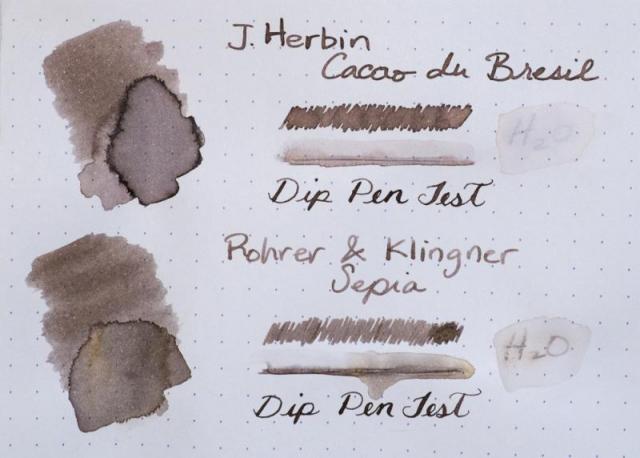 J. Herbin
Cacao du Bresil
H2O
Dip Pen Test
Rohrer & Klingner
Sepia
H2O
Dip Pen Test